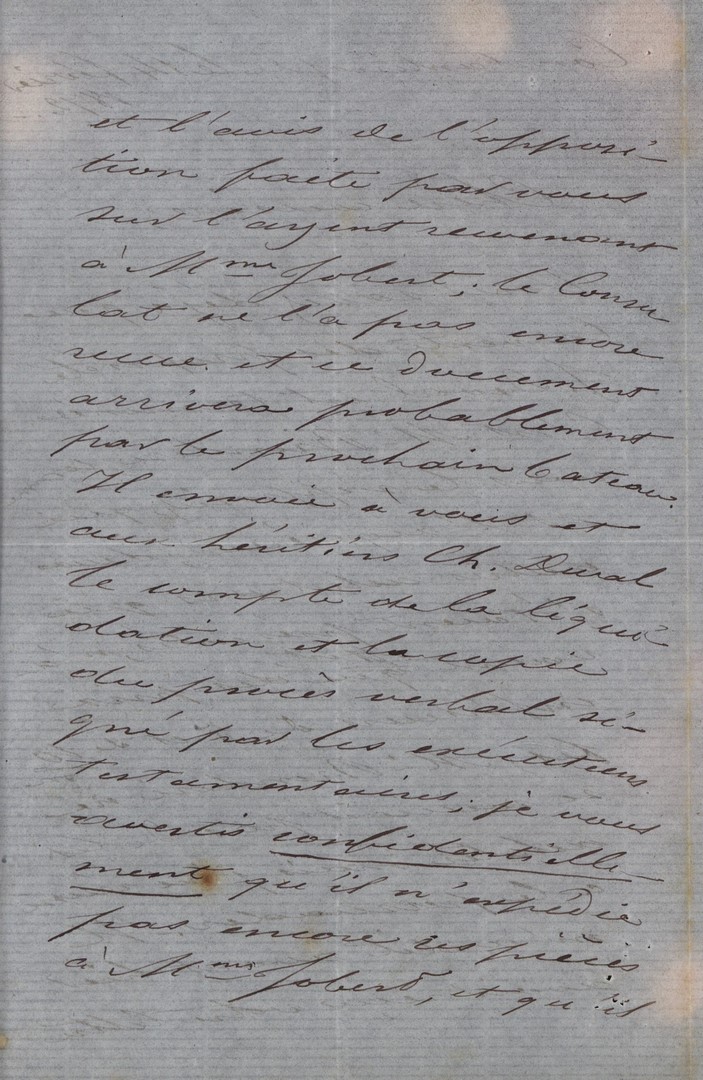 et l'avis de l'opposi-
tion faite par vous
sur l'argent revenant
à Mme Jobert; le Consu
lat ne l'a pas encore
reçue. et ce document
arrivera probablement
par le prochain bateau.
Il envoie à vous et
aux héritiers Ch. Duval
le compte de la liqui-
dation et la copie
du procès verbal si-
gné par les exécuteurs
testamentaires; je vous
avertis confidentielle
ment qu'il n'expédie
pas encore ces pièces
à Mme Jobert, et qu'il